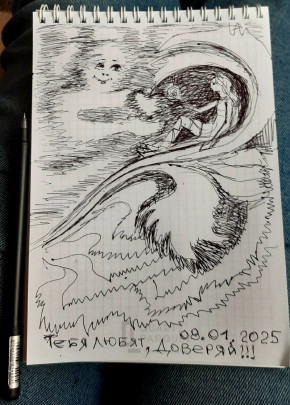 08.01.2025
ТЕБЯ ЛЮБЯТ, ДОВЕРЯЙ!!!